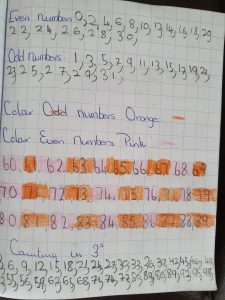 Even numbers: 0, 2, 4, 6, 8, 10, 12, 14, 16, 18, 20,
22, 24, 26, 28, 30,
Odd numbers: 1, 3, 5, 7, 9, 11, 13, 15, 17, 19, 21,
23, 25, 27, 29, 31,
Color Odd numbers Orange
Color Even Numbers Pink
60, 61, 62, 63, 64, 65, 66, 67, 68, 69
70, 71, 72, 73, 74, 75, 76, 77, 78, 79
80, 81, 82, 83, 84, 85, 86, 87, 88, 89
Counting in 3s
3, 6, 9, 12, 15, 18, 21, 24, 27, 30, 33, 36,